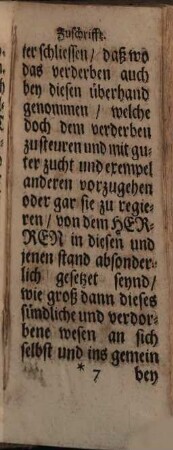 Zuschrifft.
ter schliessen / daß wo
das verderben auch
bey diesen überhand
genommen / welche
doch dem verderben
zusteuren und mit gu-
ter zucht und exempel
anderen vorzugehen
oder gar sie zu regie-
ren / von dem HER-
REN in diesen und
jenen stand absonder-
lich gesetzet seynd /
wie groß dann dieses
sündliche und verdor-
bene wesen an sich
selbst und ins gemein
* 7 bey